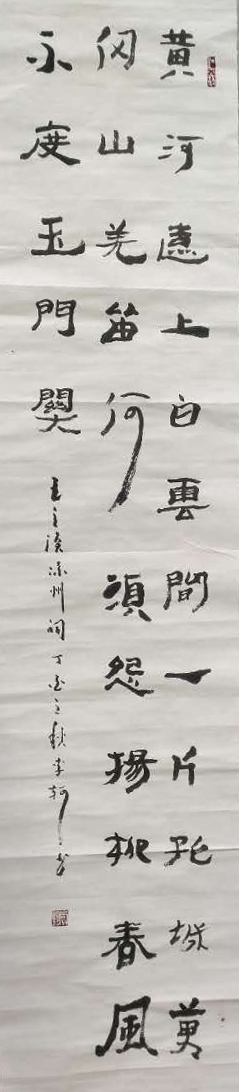 黃河遠上白雲間一片孤城萬
仞山羌笛何須怨楊柳春風
不度玉門關
王之渙涼州詞丁酉之秋李軻书